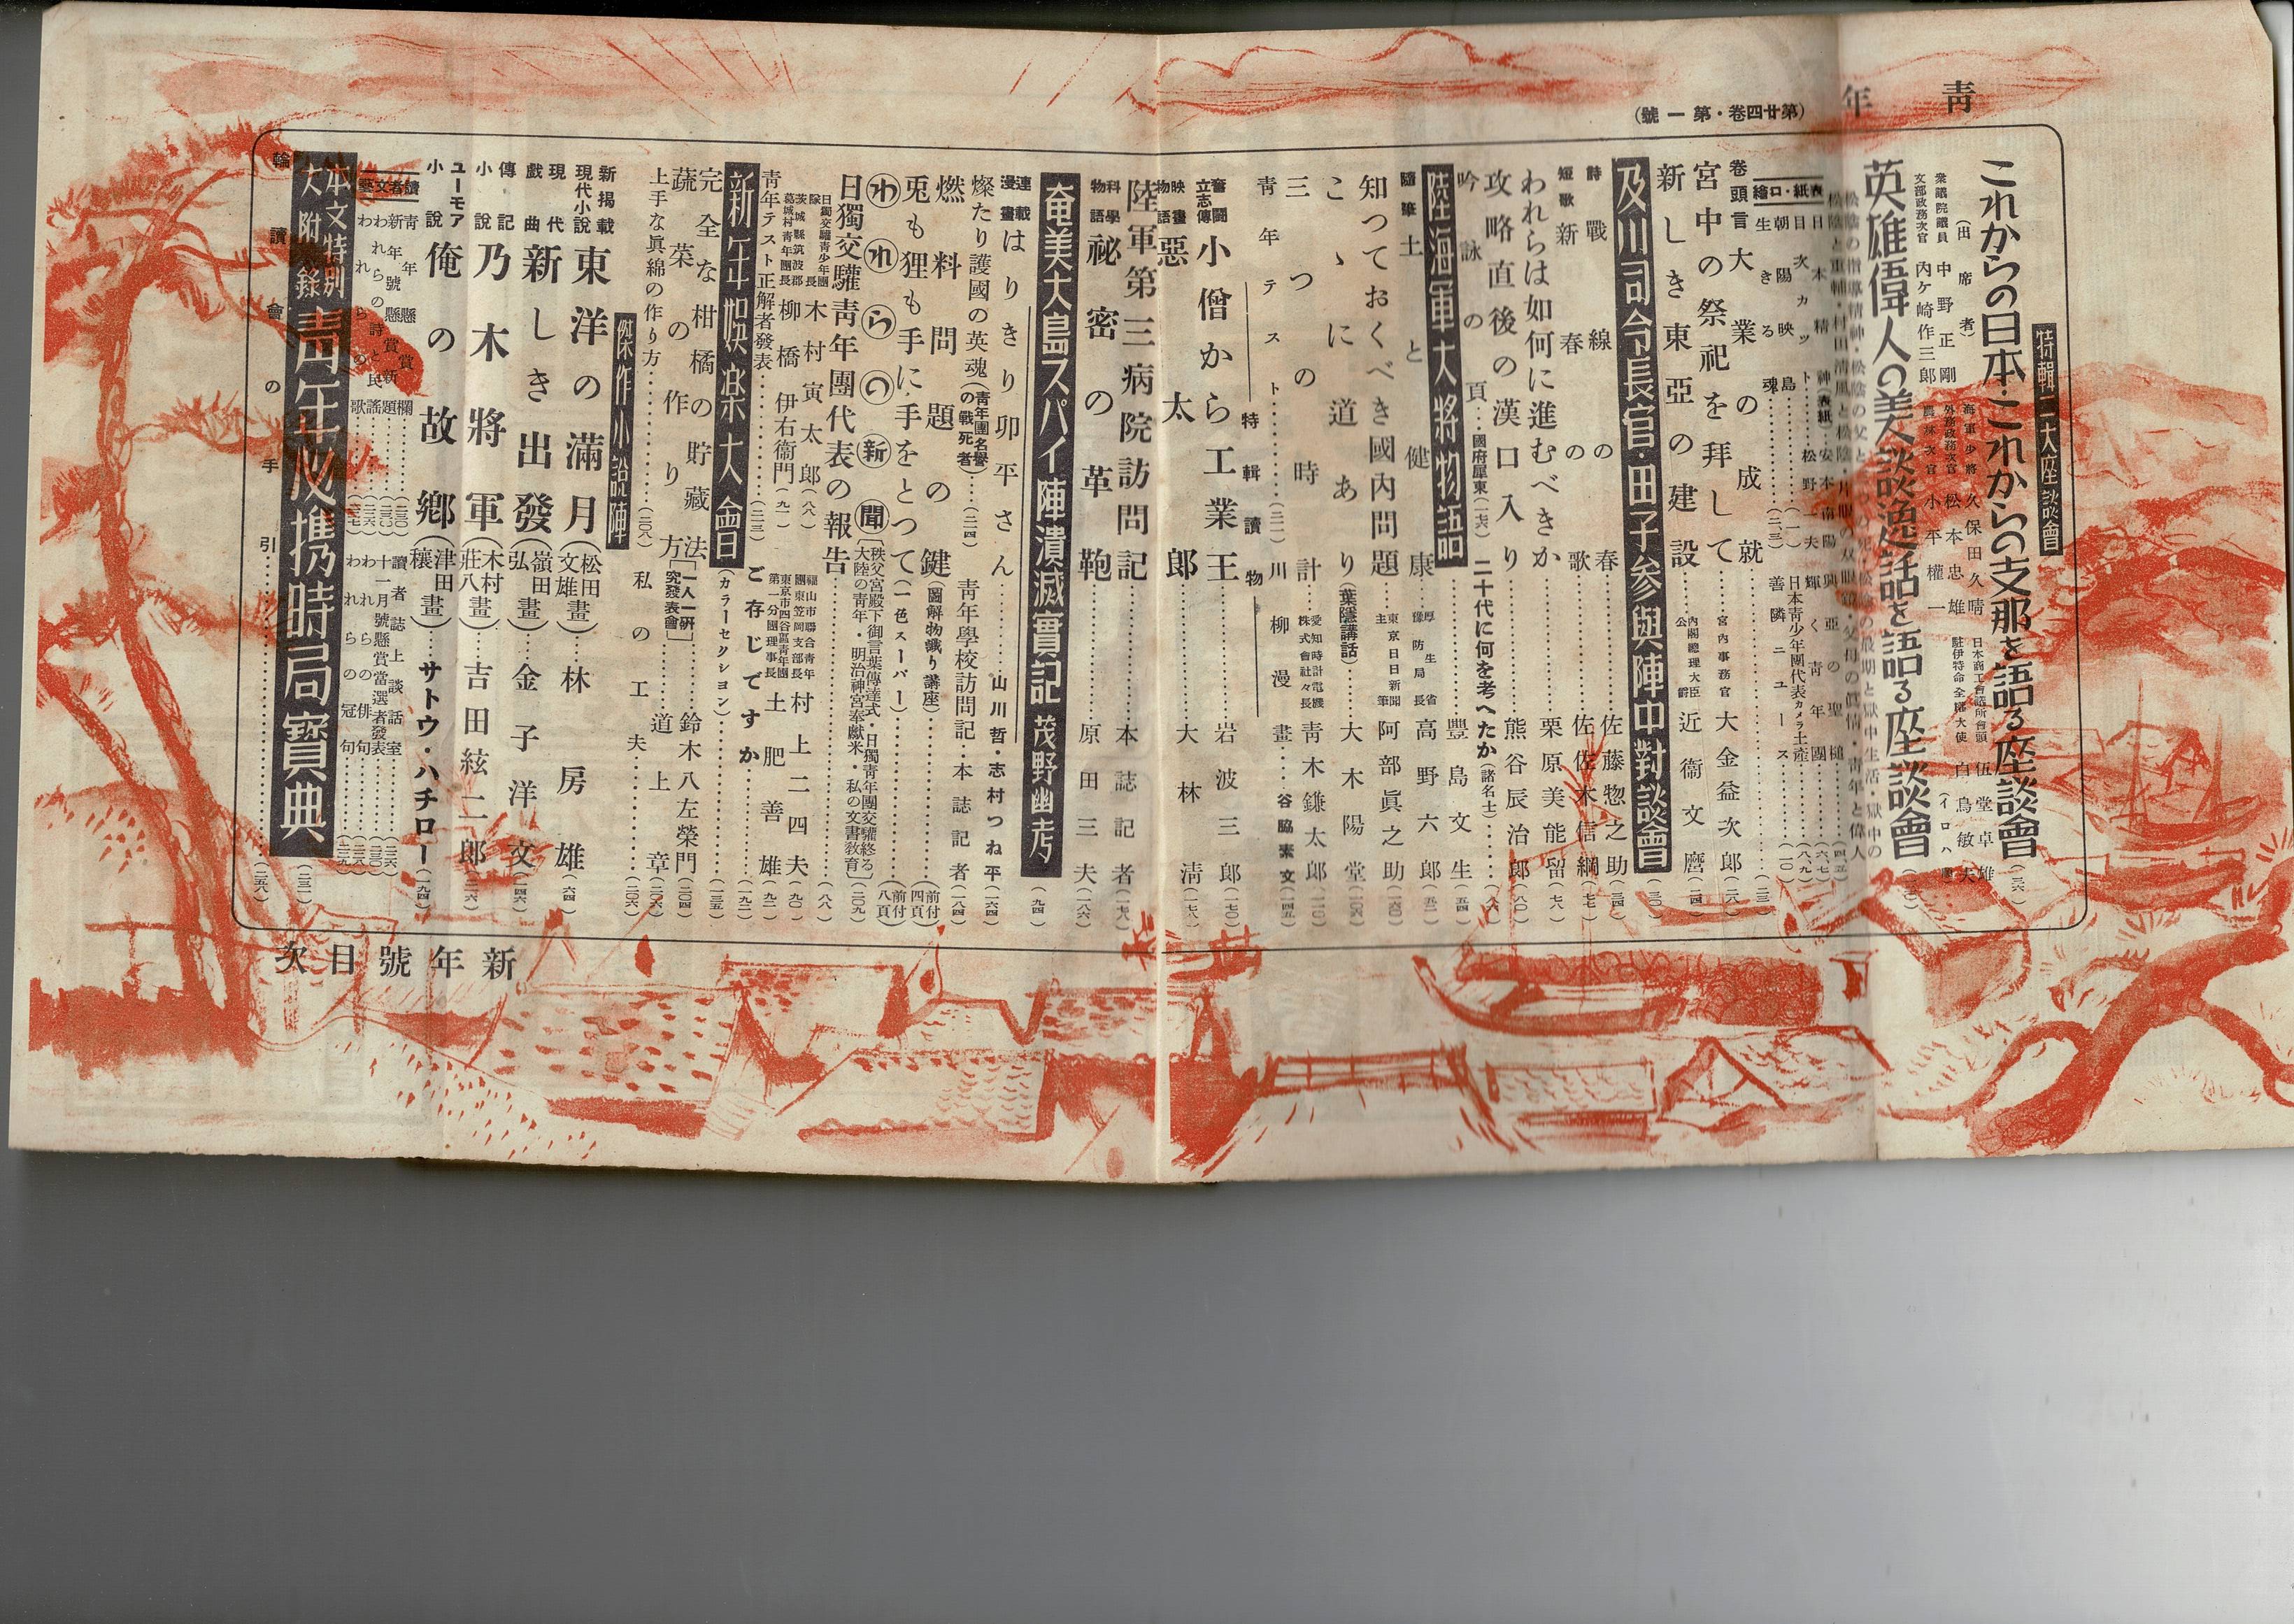 靑年
（第廿四卷・第一號）
特輯二大座談會
これからの日本・これからの支那を語る座談會
（出席者）
衆議院議員 中野正剛
文部政務次官 內ケ崎作三郎
海軍少將 久保田久晴
外務政務次官 松本忠雄
農林次官 小平權一
日本商工會議所會頭 伍堂卓雄
駐伊特命全權大使 白鳥敏夫
（イロハ順）
英雄偉人の美談逸話を語る座談會
表紙・口繪
日本精神（表紙）……安本南陽
目次カット……松野一夫
朝陽映島……（一）
生きる魂……（二、三）
輝く靑年團……（六、七）
日本靑少年團代表カメラ土產……（八、九）
善隣ニュース……（一〇）
卷頭言 大業の成就
宮中の祭祀を拜して……宮內事務官 大金益次郞（二六）
新しき東亞の建設……內閣總理大臣公爵 近衞文麿（二四）
及川司令長官・田子參與陣中對談會（三〇）
詩 戰線の春……佐藤惣之助（三四）
短歌 新春の歌……佐佐木信綱（七七）
われらは如何に進むべきか……栗原美能留（七八）
攻略直後の漢口入り……熊谷辰治郞（八〇）
二十代に何を考へたか（諸名士）……（八六）
吟詠の頁……國府犀東（一七六）
陸海軍大將物語……豐島文生（五四）
隨筆 土と健康……厚生省豫防局長 高野六郞（五二）
知つておくべき國內問題……東京日日新聞主筆 阿部眞之助（一六〇）
こゝに道あり（葉隱講話）……大木陽堂（二〇六）
三つの時計……愛知時計電機株式會社々長 靑木鎌太郞（二一〇）
靑年テスト……（三二）
川柳漫畫……谷脇素文（一四五）
特輯讀物
奮鬪立志傳 小僧から工業王……岩波三郞（一七〇）
映畫物語 惡太郞……大林淸（一七八）
陸軍第三病院訪問記……本誌記者（一七六）
科學物語 祕密の革鞄……原田三夫（一八六）
奄美大島スパイ陣潰滅實記 茂野幽考（九四）
連載漫畫 はりきり卯平さん……山川哲・志村つね平（一六四）
燦たり護國の英魂（靑年團名譽の戰死者）……（二四）
靑年學校訪問記・本誌記者（一八四）
燃料問題の鍵（圖解物識り講座）……（前付四頁）
兎も狸も手に手をとつて（一色スーパー）……（前付八頁）
われらの新聞〔秩父宮殿下御言葉傳達式・日獨靑年團交驩終る 大陸の靑年・明治神宮奉獻米・私の文書敎育〕（二〇九）
日獨交驩靑年團代表の報告……（八八）
日獨交驩靑少年團隊長 木村寅太郞（八八）
茨城縣筑波郡葛城村靑年團長 柳橋伊右衞門（九一）
福山市聯合靑年團東笠岡支部長 村上二四夫（九〇）
東京市四谷區靑年團第一分團理事長 土肥善雄（九二）
靑年テスト正解者發表……（二一三）
新年娛樂大會
ご存じですか（カラーセクション）……（一九二）
完全な柑橘の貯藏法〔一人一硏究發表會〕……（一三五）
蔬菜の作り方……鈴木八左榮門（二〇四）
上手な眞綿の作り方……（二〇八）
私の工夫……道上章（二〇六）
傑作小說陣
新揭載現代小說 東洋の滿月（松田文雄畫）……林房雄（六四）
現代戲曲 新しき出發（嶺田弘畫）……金子洋文（一四六）
傳記小說 乃木將軍（木村莊八畫）……吉田絃二郞（二一六）
ユーモア小說 俺の故鄕（津田穰畫）……サトウ・ハチロー（一九四）
讀者文藝
靑年懸賞新題欄……（二三〇）
新年號懸賞
われらの詩と民謠……
われらの歌……
讀者誌上談話室……
十一月號懸賞當選者發表……
われらの俳句……
われらの冠句……
本文特別大附錄
靑年必携時局寶典（二三一）
輪讀會の手引……（二五八）
新年號目次